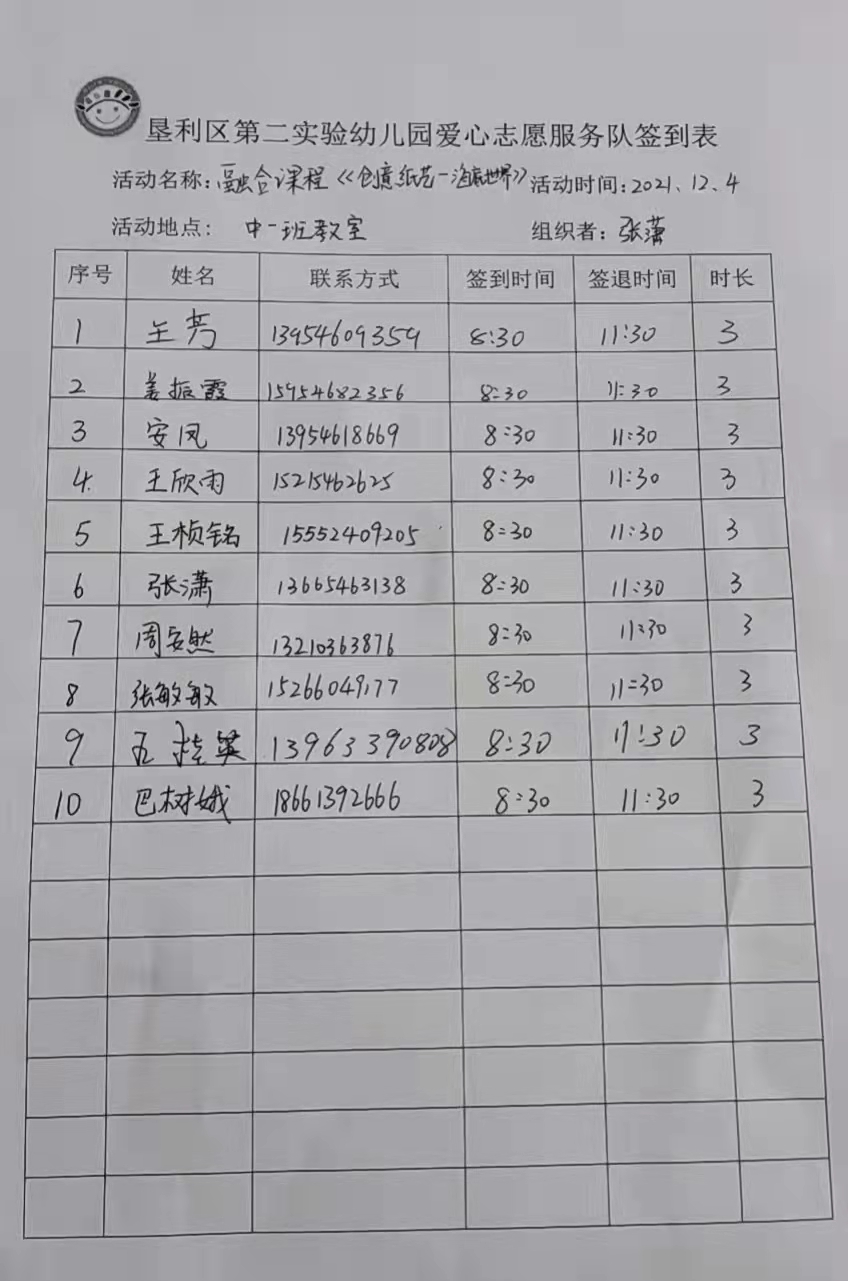 垦利区第二实验幼儿园爱心志愿服务队签到表
活动名称：融合课程《创意纸艺-海底世界》 活动时间：2021、12、4
活动地点： 中一班教室 组织者：张潇
序号 姓名 联系方式 签到时间 签退时间 时长
1 王芳 13954609359 8:30 11:30 3
2 姜振霞 15954682356 8:30 11:30 3
3 安凤 13954618669 8:30 11:30 3
4. 王欣雨 15215462625 8:30 11:30 3
5 王桢铭 15552409205 8:30 11:30 3
6 张潇 13665463138 8:30 11:30 3
7 周安然 13210363876 8:30 11:30 3
8 张敏敏 15266049177 8:30 11:30 3
9 桂英 13963390808 8:30 11:30 3
10 巴树娥 18661392666 8:30 11:30 3